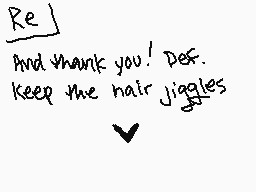 Re
And thank you! Def.
Keep the hair jiggles